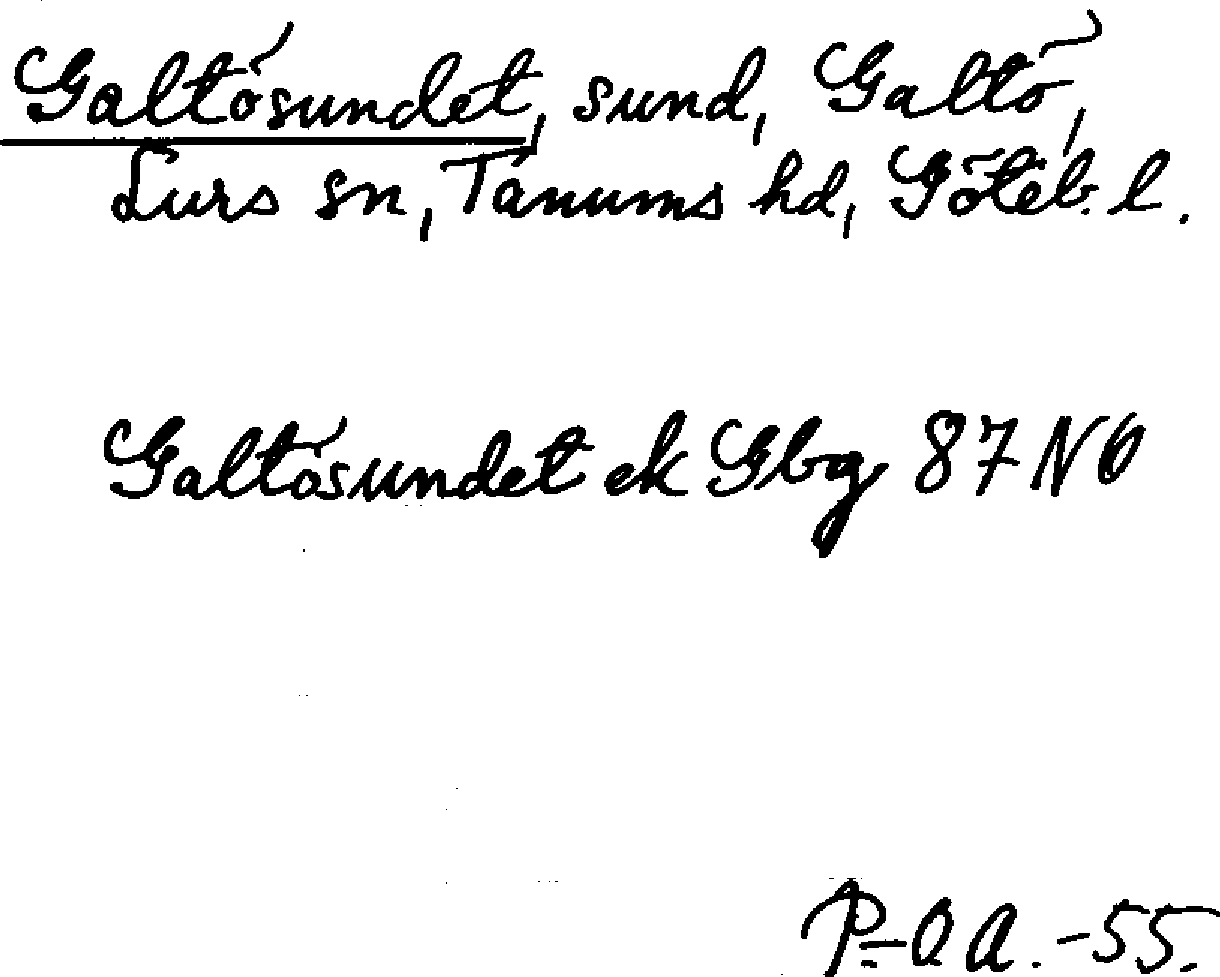 Galtösundet, sund, Galtö,
Lurs sn, Tanums hd, Göteb. l.
Galtösundet ek Gbg 87 NO
P-O A. -55.